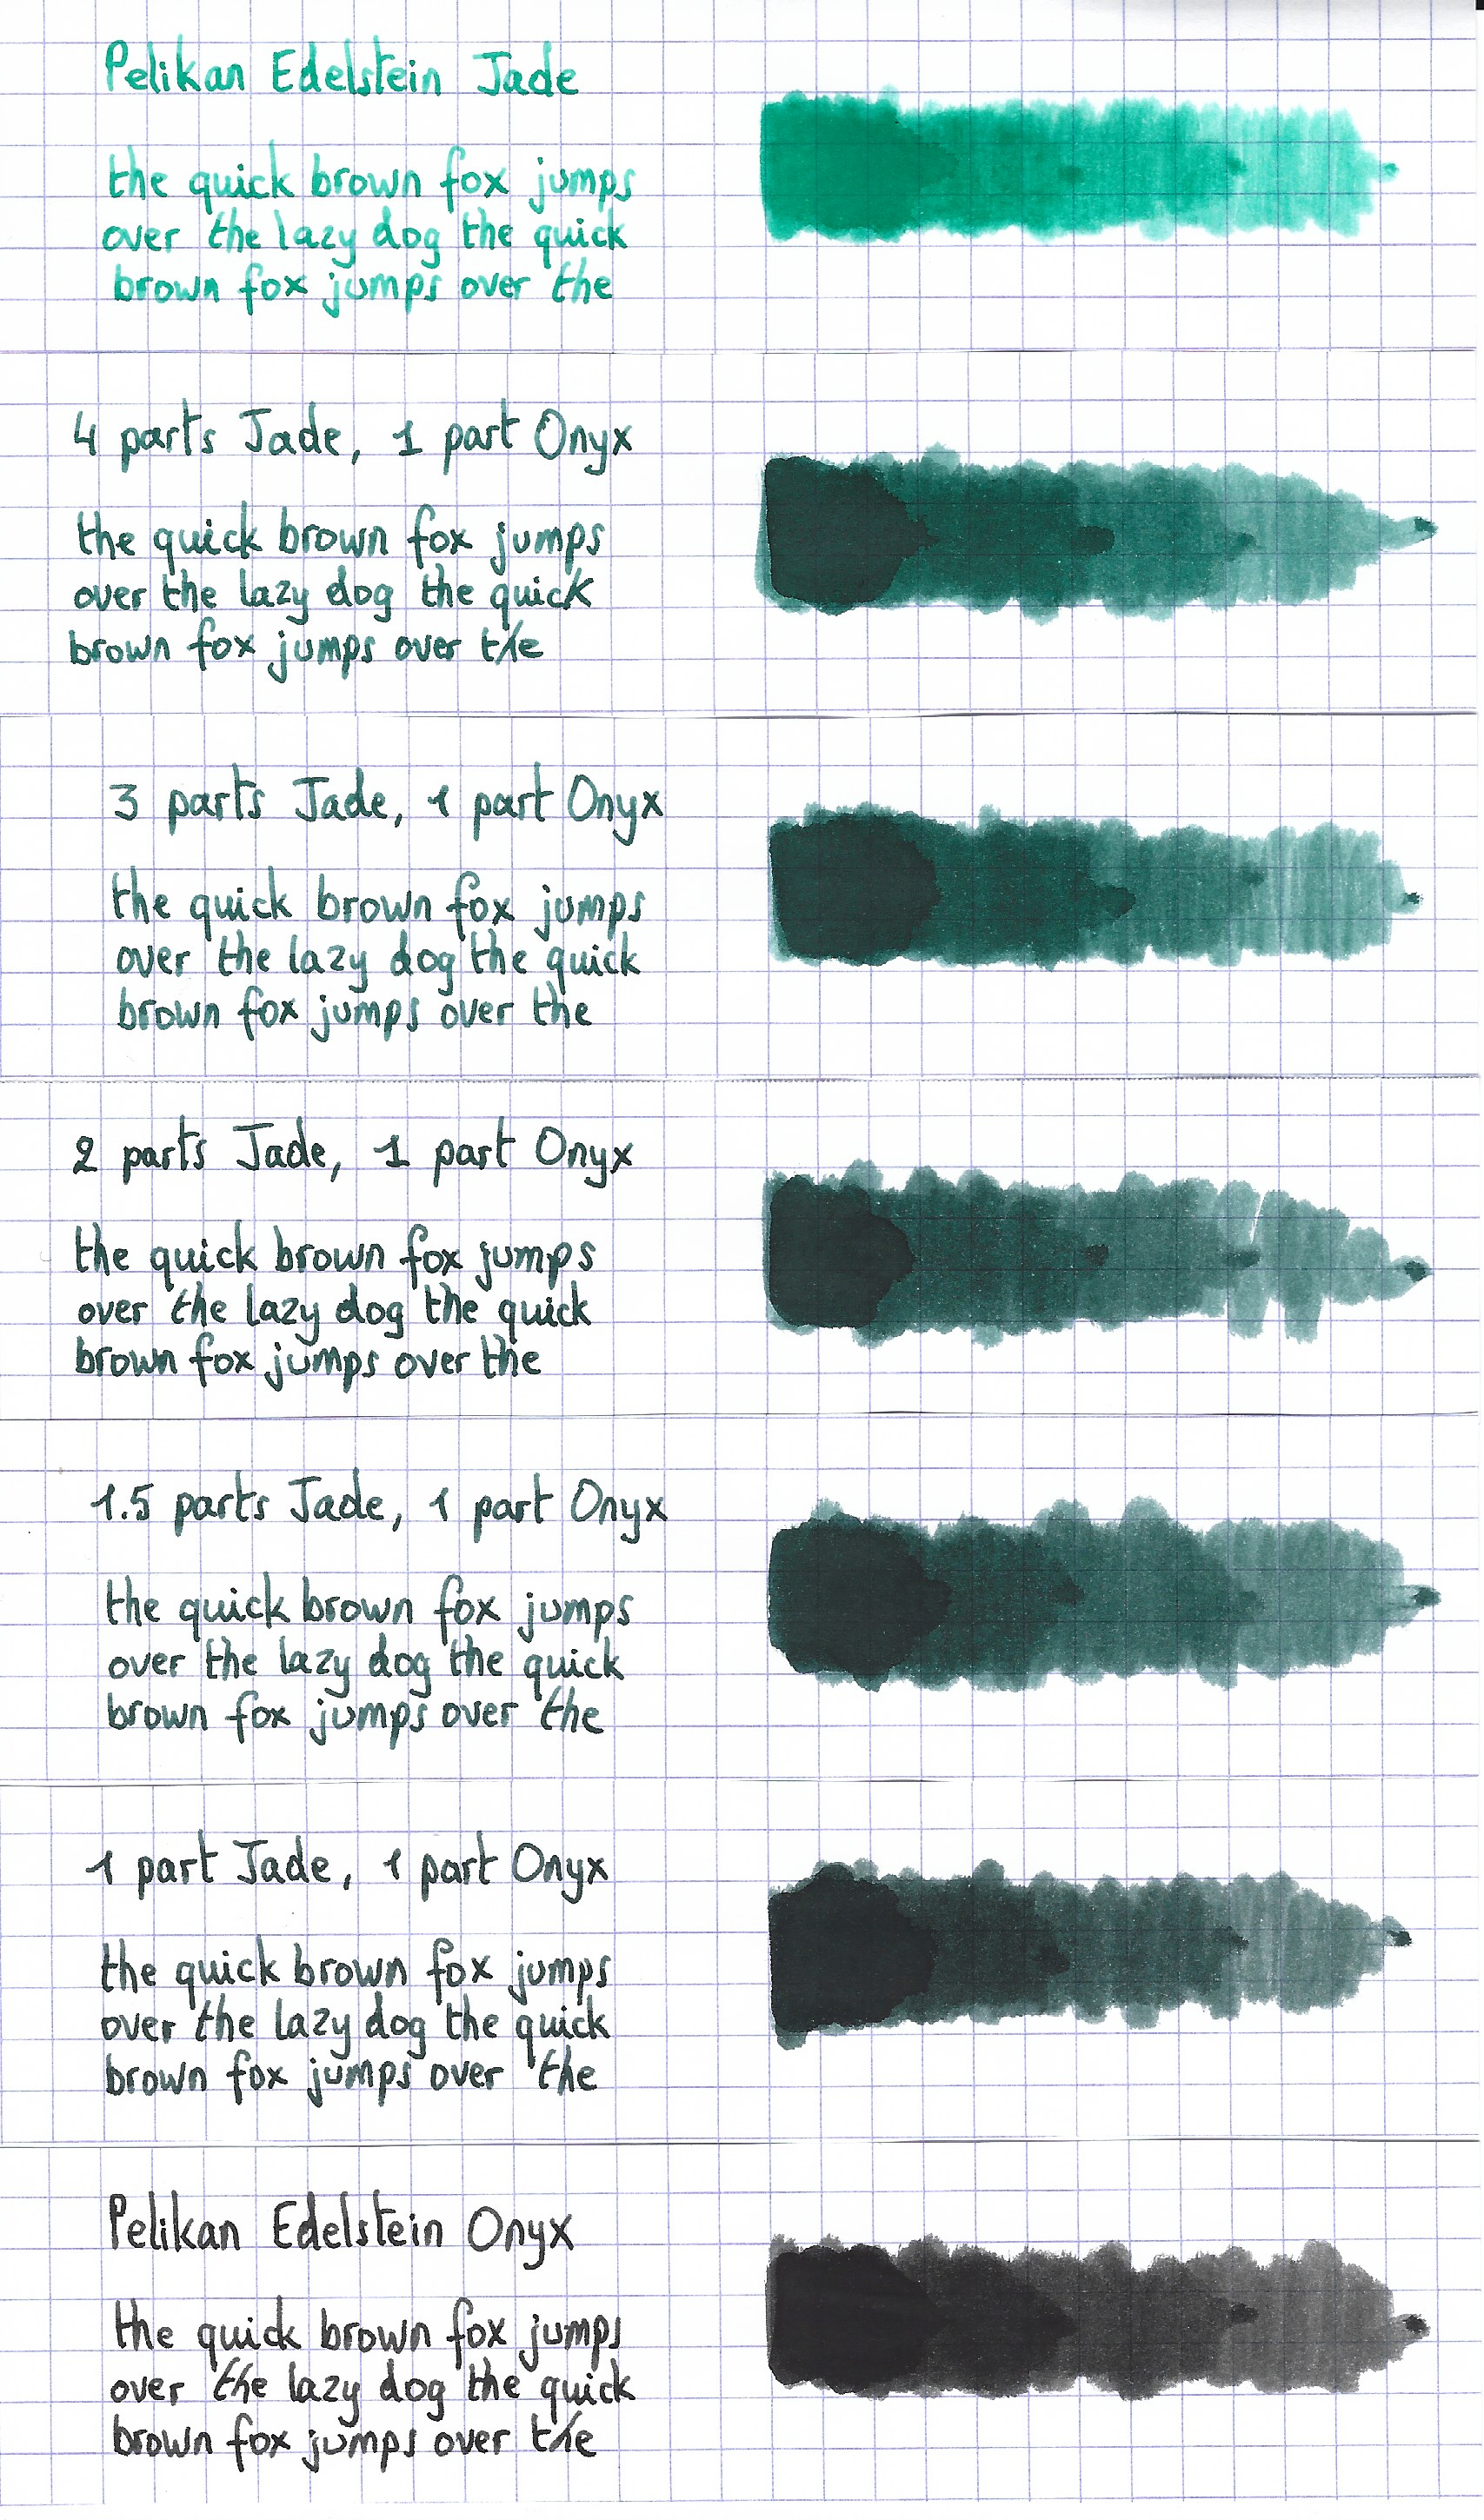 Pelikan Edelstein Jade
the quick brown fox jumps
over the lazy dog the quick
brown fox jumps over the
4 parts Jade, 1 part Onyx
the quick brown fox jumps
over the lazy dog the quick
brown fox jumps over the
3 parts Jade, 1 part Onyx
the quick brown fox jumps
over the lazy dog the quick
brown fox jumps over the
2 parts Jade, 1 part Onyx
the quick brown fox jumps
over the lazy dog the quick
brown fox jumps over the
1.5 parts Jade, 1 part Onyx
the quick brown fox jumps
over the lazy dog the quick
brown fox jumps over the
1 part Jade, 1 part Onyx
the quick brown fox jumps
over the lazy dog the quick
brown fox jumps over the
Pelikan Edelstein Onyx
the quick brown fox jumps
over the lazy dog the quick
brown fox jumps over the